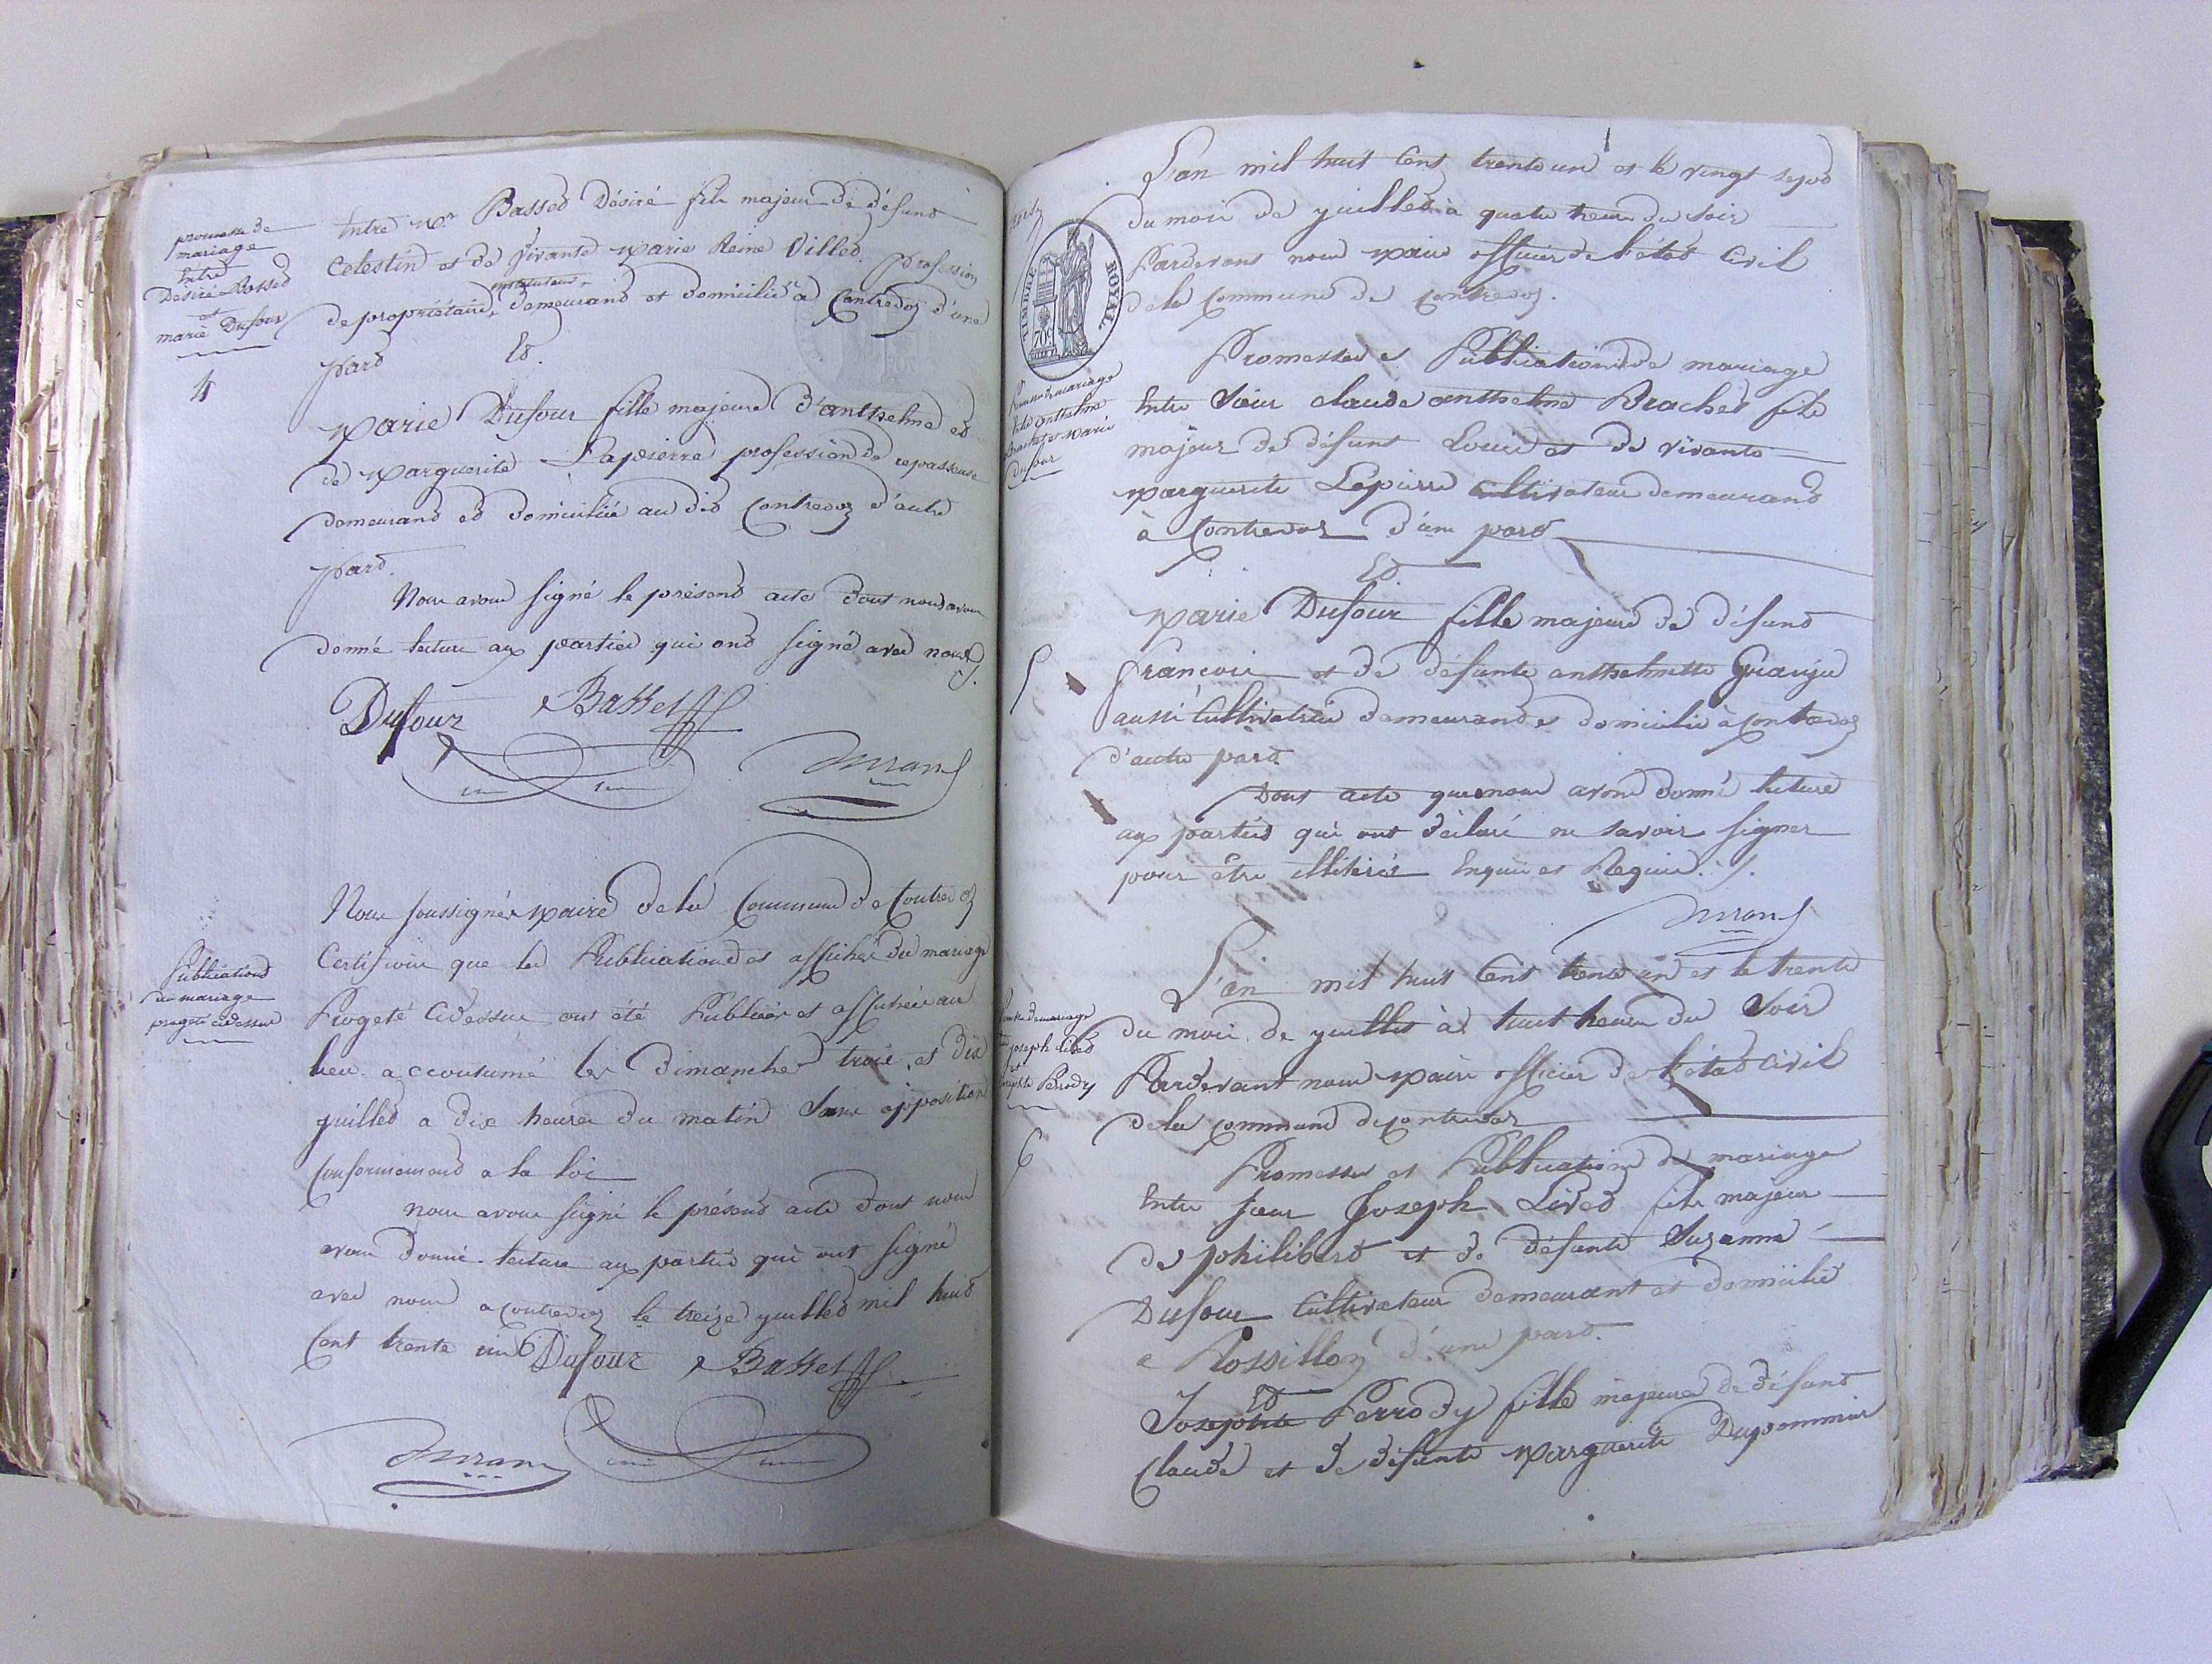 promesse de
mariage
Entre
Désiré Basset
et
marie Dufour
4
Entre Mr Basset Désiré fils majeur de défunt
Celestin et de vivante Marie Reine Villet. profession
de propriétaire, demeurant et domicilié à Contrevoz d'une
part Et.
Marie Dufour fille majeure d'anthelme et
de Marguerite Lapierre profession de repasseuse
demeurant et domiciliée au dit Contrevoz d'autre
part.
Nous avons signé le présent acte dont nous avons
donné lecture aux parties qui ont signé avec nous
Dufour Basset
Publications
du mariage
progeté cidessus
Nous soussigné Maire de la Commune de Contrevoz
Certifions que les Publications et affiches du mariage
Progeté Cidessus ont été Publiées et affichées au
lieu accoutumé les Dimanches trois et dix
juillet a dix heures du matin Sans opposition
Conformement a la loi
nous avons signé le présent acte dont nous
avons donné lecture aux parties qui ont signé
avec nous a contrevoz le treize juillet mil huit
Cent trente un Dufour Basset
L'an mil huit Cent trente un et le vingt sept
du mois de juillet à quatre heures du Soir
Pardevant nous Maire officier de l'état Civil
de la Commune de Contrevoz.
TIMBRE ROYAL
70c
Promesse de mariage
Entre anthelme
Brachet et Marie
Dufour
Promesses et Publications de mariage
Entre Sieur claude anthelme Brachet fils
majeur de défunt Louis et de vivante
Marguerite Lapierre Cultivateur demeurant
à Contrevoz d'une part
Et
Marie Dufour fille majeure de défunt
5
françois et de défunte anthelmette
aussi Cultivatrice demeurant et domicilié à Contrevoz
d'autre part
Dont acte que nous avons donné lecture
aux parties qui ont déclaré ne savoir signer
pour être illiterés Enquis et Requis ./.
L'an mil huit Cent trente un et le trente
du mois de juillet à huit heures du Soir
Pardevant nous Maire officier de l'état Civil
de la Commune de Contrevoz
mariage
joseph Livet
et
Perrody
6
Promesses et Publications de mariage
Entre Sieur Joseph Livet fils majeur
de philibert et de défunte Suzanne
Dufour Cultivateur demeurant et domicilié
a Rossillon d'une part.
Et
Josephte Perrody fille majeure de défunt
Claude et de défunte Marguerite